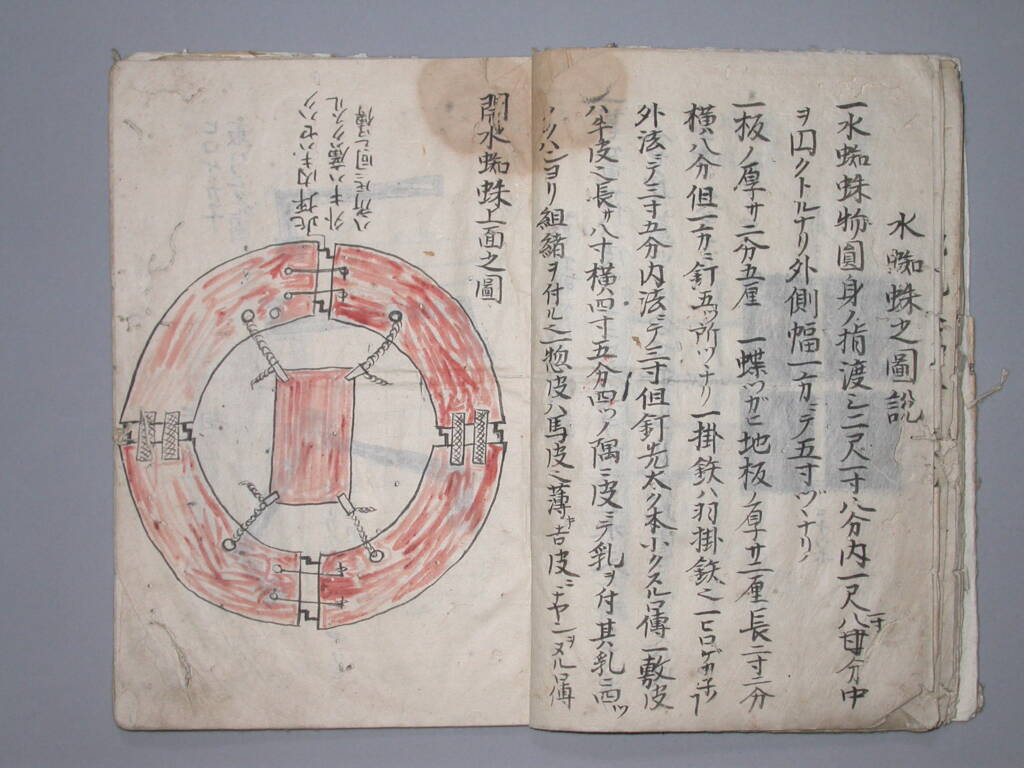 水蜘蛛之圖説
一水蜘蛛物圓身ノ指渡シ二尺一寸八分内一尺八分中
ヲ円クトルナリ外側幅一方ニテ五寸ヅヽナリ
一板ノ厚サ二分五厘 一蝶ツガヒ地板ノ厚サ二厘長二寸二分
横八分但一方ニ釘五ツ所ツヽナリ 一掛鉄ハ羽掛鉄也
外法ニテ二寸五分内法ニテ二寸但釘先太ク本小クスル傳 一敷皮
ハ牛皮也長サ八寸横四寸五分四ツノ隅ニ皮ニテ乳ヲ付其乳ニ四ツ
ヨリ組緒ヲ付ル也惣皮ハ馬皮也薄キ吉皮ニナヤシヌル傳
開水蜘蛛上面之圖
此坪内キハセハク
外キハ廣クスル